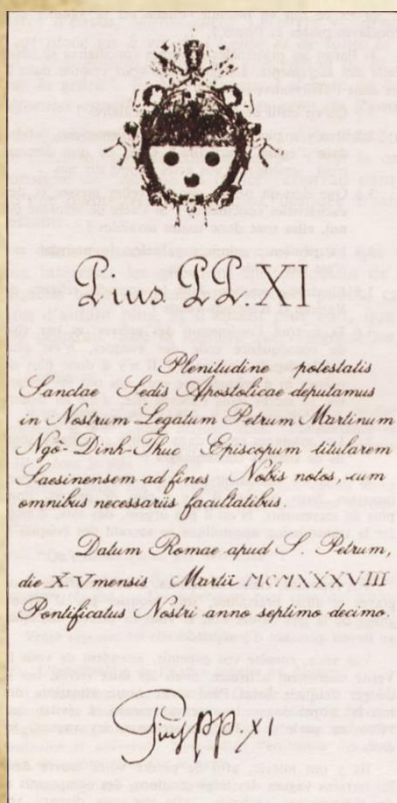 Pius PP. XI
Plenitudine potestatis
Sanctae Sedis Apostolicae deputamus
in Nostrum Legatum Petrum Martinum
Ngô-Dinh-Thuc Episcopum titularem
Saesinensem ad fines Nobis notos, cum
omnibus necessariis facultatibus.
Datum Romae apud S. Petrum,
die X Vmensis Martii MCMXXXVIII
Pontificatus Nostri anno septimo decimo.
Pius PP. XI